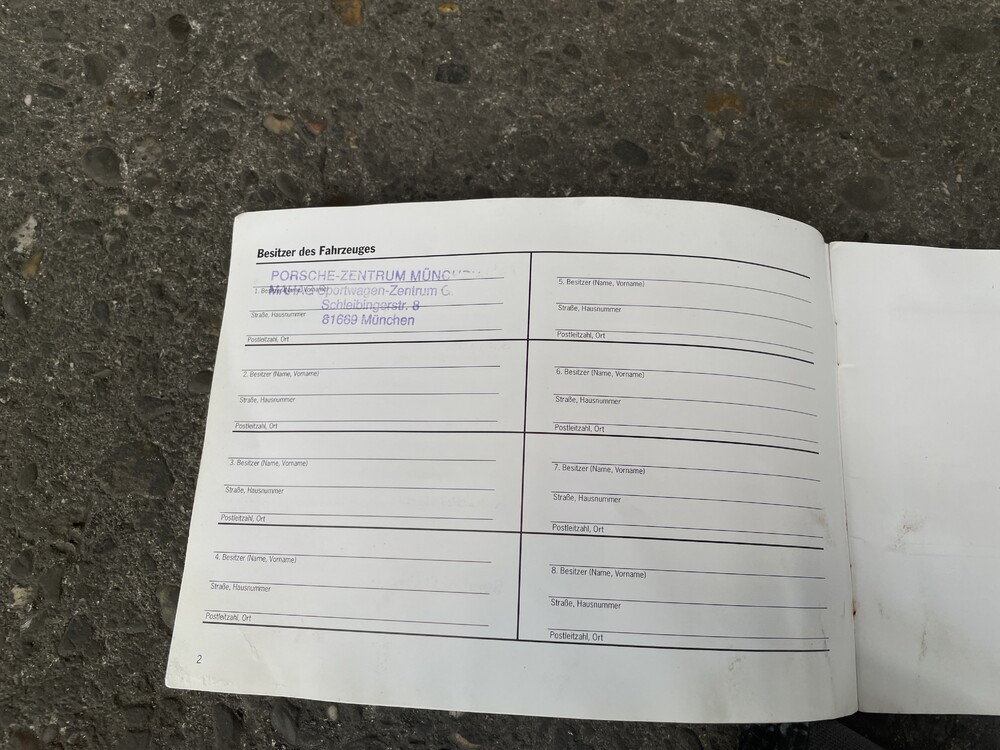 Besitzer des Fahrzeuges
PORSCHE-ZENTRUM
1. Besitzer (Name, Vorname)
Sportwagen-Zentrum
Straße, Hausnummer
Schleibingerstr. 8
81669 München
Postleitzahl, Ort
2. Besitzer (Name, Vorname)
Straße, Hausnummer
Postleitzahl, Ort
3. Besitzer (Name, Vorname)
Straße, Hausnummer
Postleitzahl, Ort
4. Besitzer (Name, Vorname)
Straße, Hausnummer
Postleitzahl, Ort
5. Besitzer (Name, Vorname)
Straße, Hausnummer
Postleitzahl, Ort
6. Besitzer (Name, Vorname)
Straße, Hausnummer
Postleitzahl, Ort
7. Besitzer (Name, Vorname)
Straße, Hausnummer
Postleitzahl, Ort
8. Besitzer (Name, Vorname)
Straße, Hausnummer
Postleitzahl, Ort
2